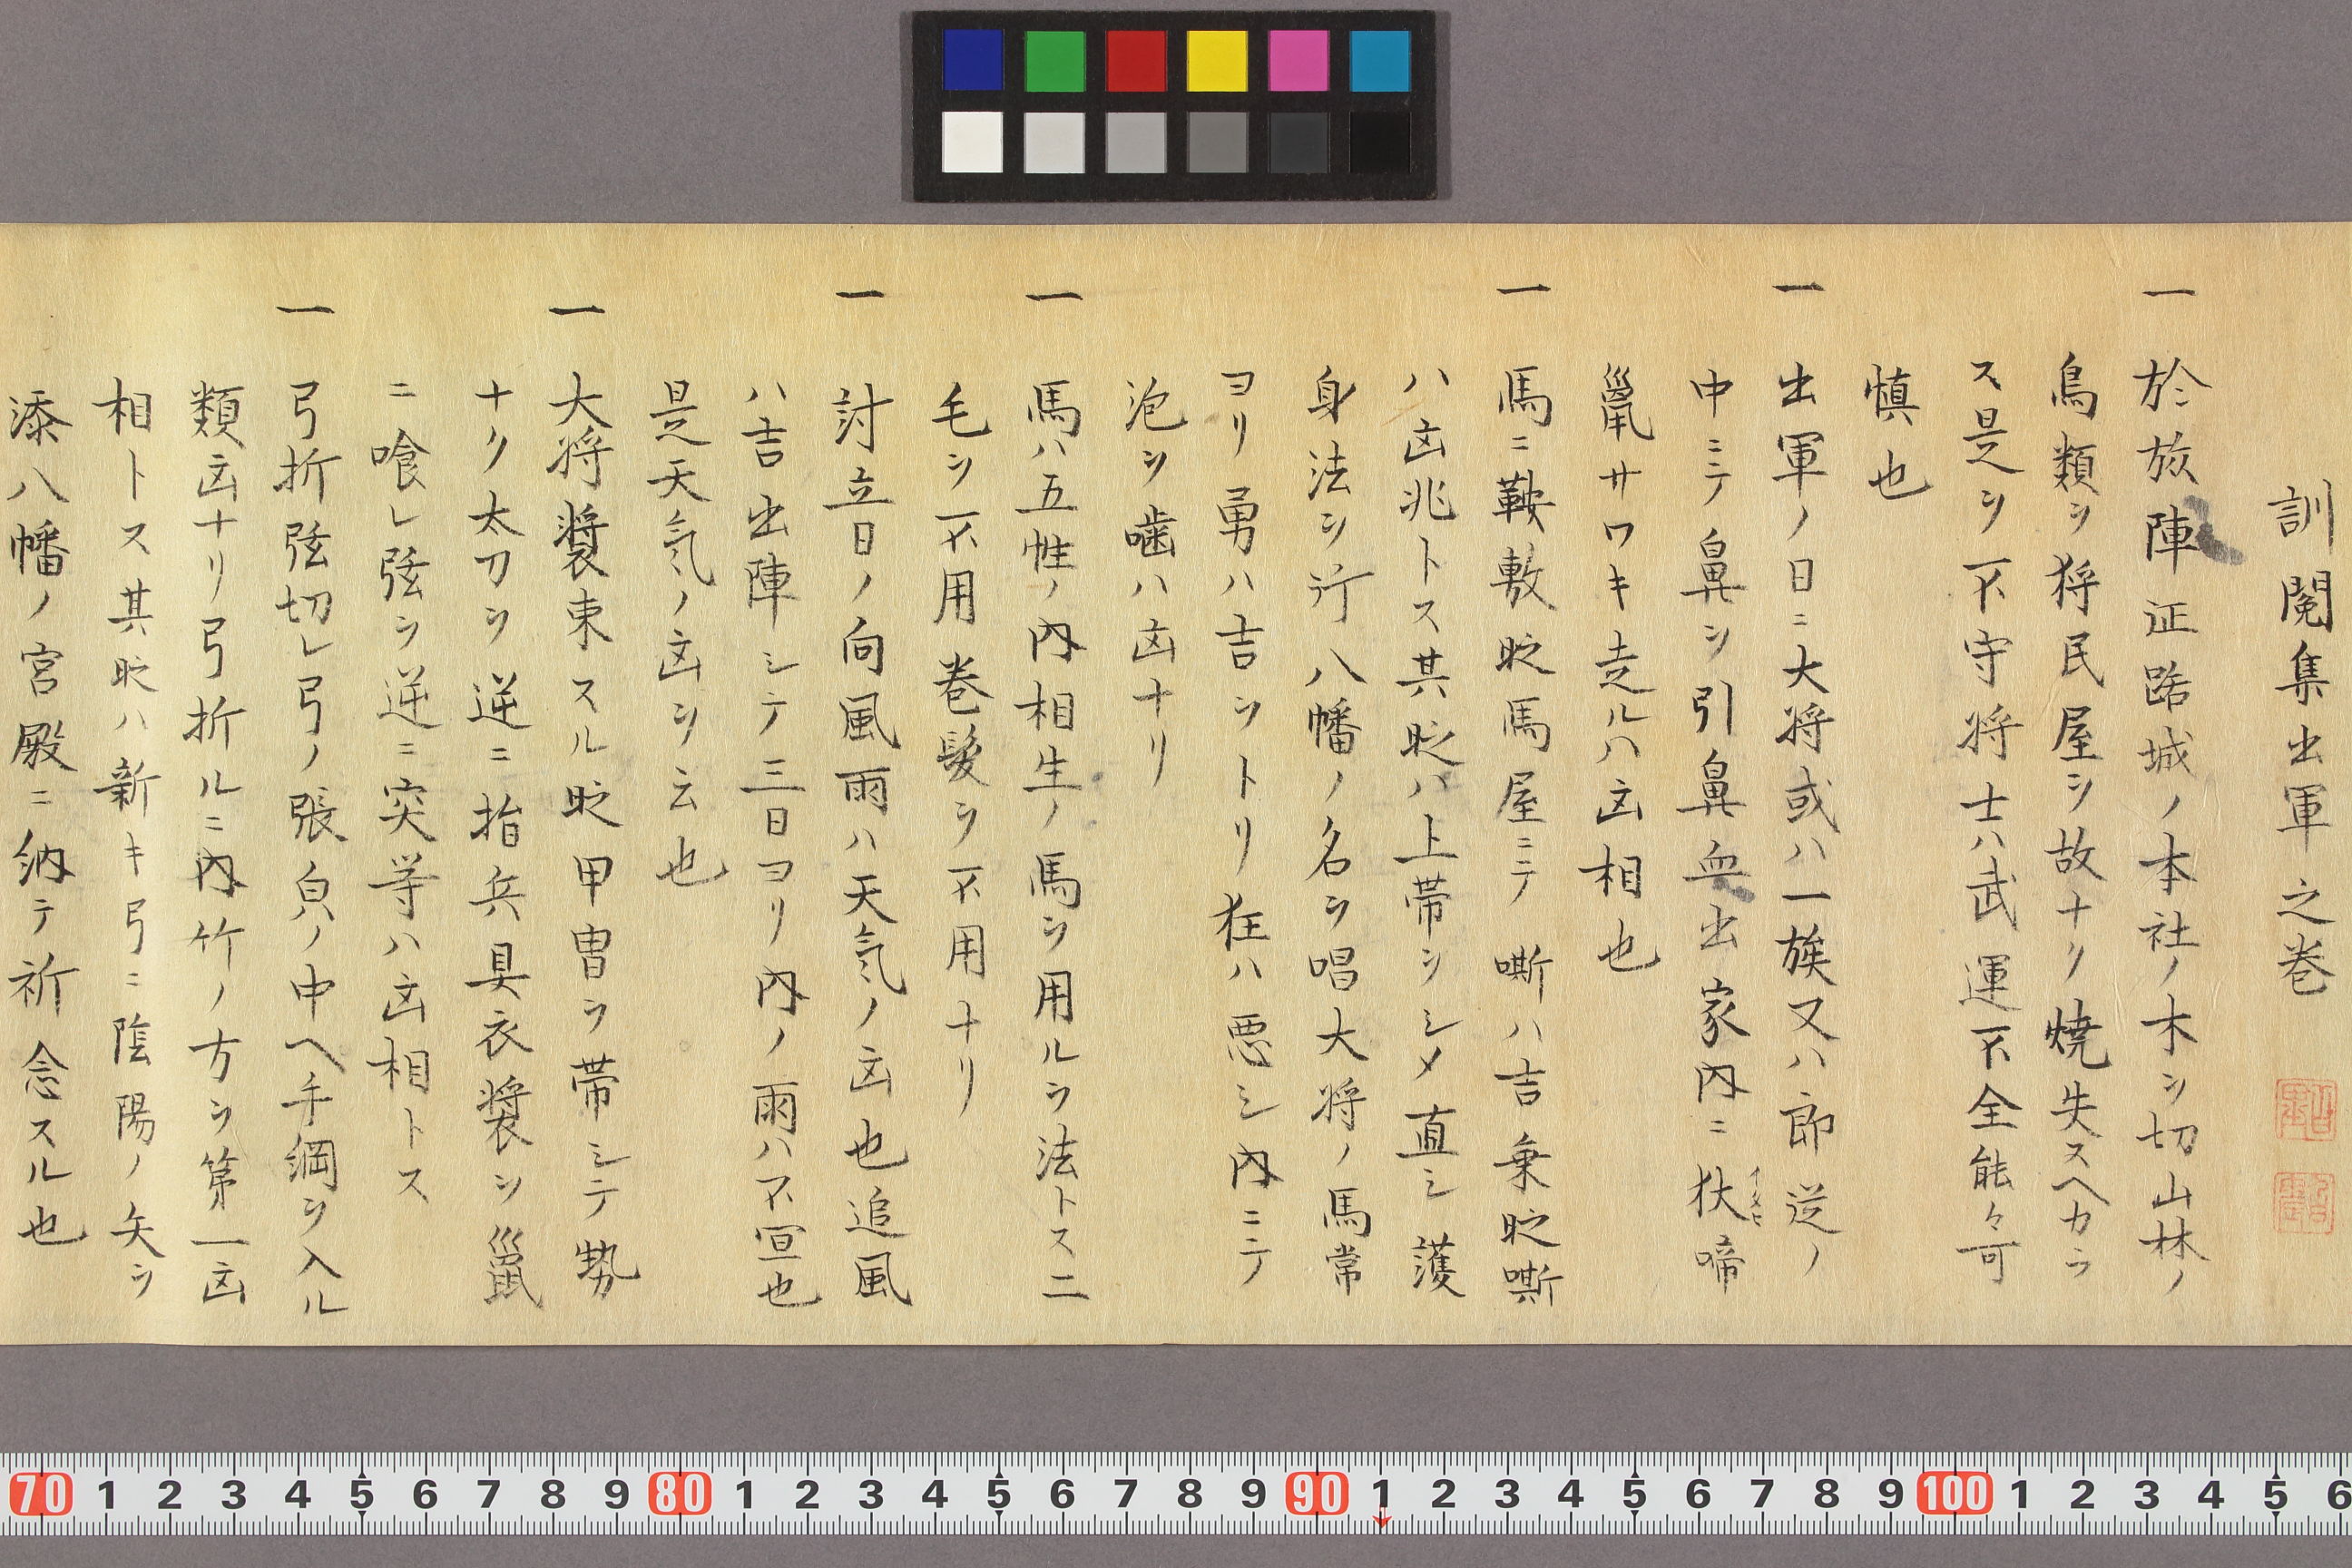 訓閲集出軍之巻
一 於放陣征路城ノ本社ノ木ヲ切山林ノ
鳥類ヲ狩民屋ヲ故ナク焼失スヘカラ
ス是ヲ不守将士ハ武運不全能々可
慎也
一 出軍ノ日ニ大将或ハ一族又ハ郎従ノ
中ニテ鼻ヲ引鼻血出家内ニ狄啼
イヌヒ
鼠サワキ走ルハ凶相也
一 馬ニ鞍敷時馬屋ニテ嘶ハ吉乗時嘶
ハ凶兆トス其時ハ上帯ヲシメ直シ護
身法ヲ行八幡ノ名ヲ唱大将ノ馬常
ヨリ勇ハ吉ヲトリ狂ハ悪シ内ニテ
泡ヲ噛ハ凶ナリ
一 馬ハ五性ノ内相生ノ馬ヲ用ルヲ法トス二
毛ヲ不用巻髪ヲ不用ナリ
一 討立日ノ向風雨ハ天気ノ凶也追風
ハ吉出陣シテ三日ヨリ内ノ雨ハ不宜也
是天気ノ凶ヲ云也
一 大将装束スル時甲冑ヲ帯シテ勢
ナク太刀ヲ逆ニ指兵具衣装ヲ鼠
ニ喰レ弦ヲ逆ニ突等ハ凶相トス
一 弓折弦切レ弓ノ張負ノ中ヘ手綱ヲ入ル
類凶ナリ弓折ルニ内竹ノ方ヲ第一凶
相トス其時ハ新キ弓ニ陰陽ノ矢ヲ
添八幡ノ宮殿ニ納テ祈念スル也
70 1 2 3 4 5 6 7 8 9 80 1 2 3 4 5 6 7 8 9 90 1 2 3 4 5 6 7 8 9 100 1 2 3 4 5 6